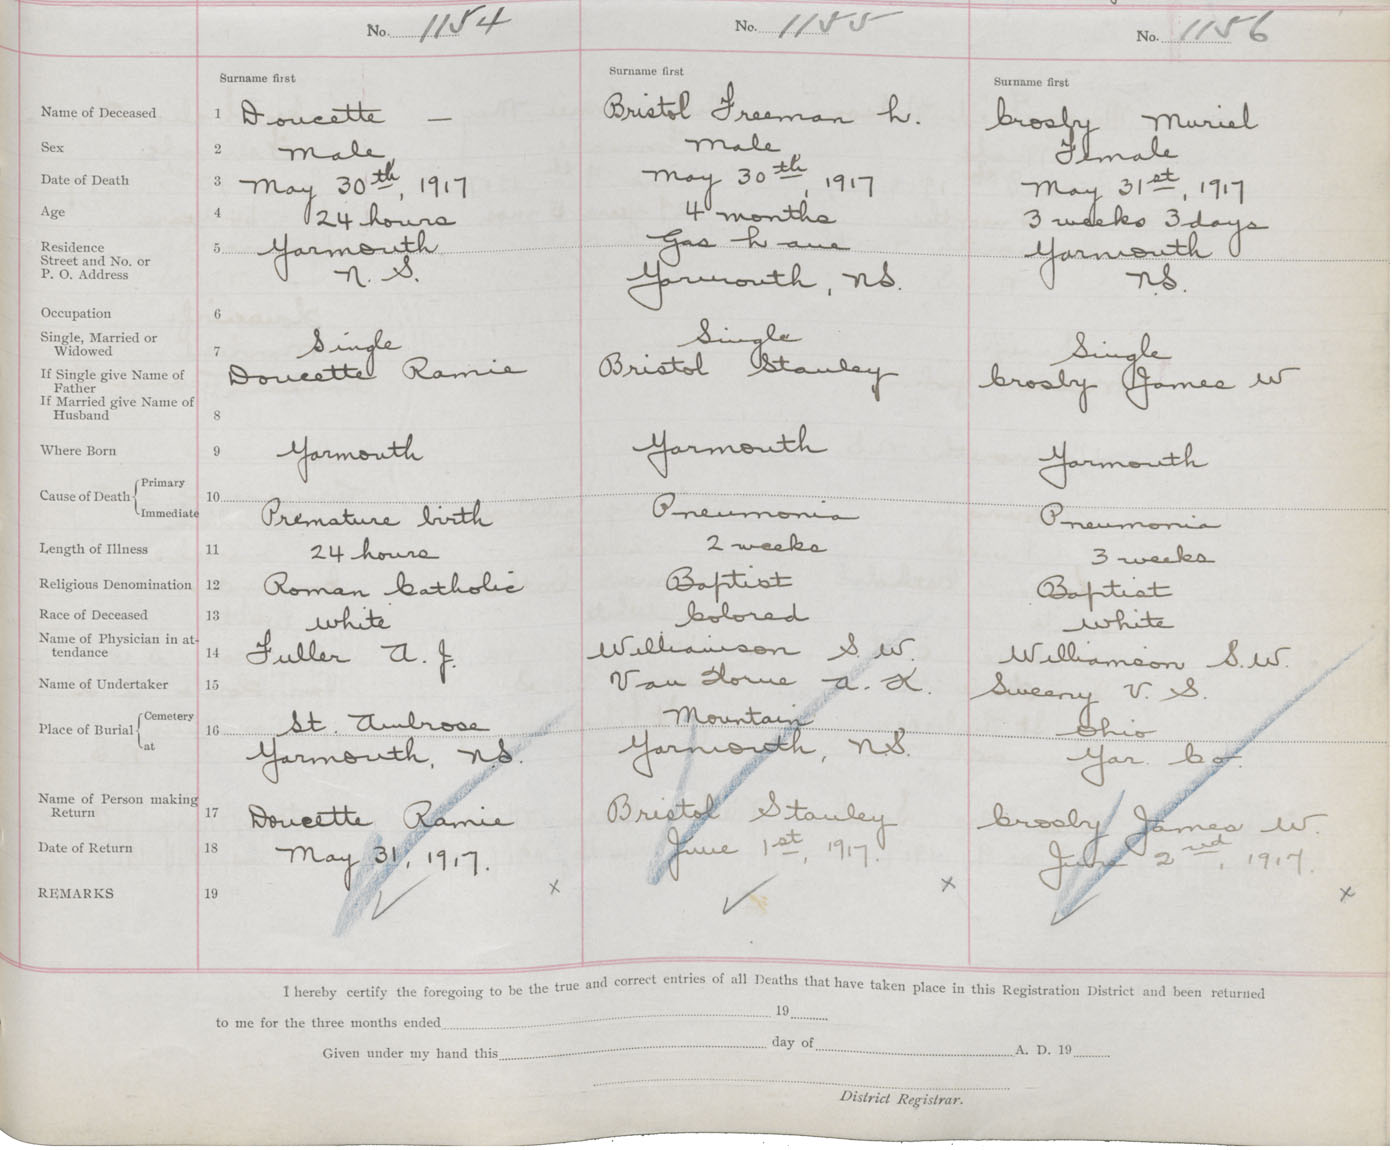 No. 1154 No. 1155 No. 1156
Surname first Surname first Surname first
Name of Deceased 1 Doucette — Bristol Freeman H. Crosby Muriel
Sex 2 Male Male Female
Date of Death 3 May 30th, 1917 May 30th, 1917 May 31st, 1917
Age 4 24 hours 4 months 3 weeks 3 days
Residence 5 Yarmouth Gas Yarmouth
Street and No. or
P. O. Address N. S. Yarmouth, N.S. N.S.
Occupation 6
Single, Married or
Widowed 7 Single Single Single
If Single give Name of Doucette Ramie Bristol Stanley Crosby James W
Father
If Married give Name of
Husband 8
Where Born 9 Yarmouth Yarmouth Yarmouth
Cause of Death Primary
10
Immediate Premature birth Pneumonia Pneumonia
Length of Illness 11 24 hours 2 weeks 3 weeks
Religious Denomination 12 Roman Catholic Baptist Baptist
Race of Deceased 13 white Colored white
Name of Physician in at-
tendance 14 Fuller A. J. Williamson S. W. Williamson S. W.
Name of Undertaker 15 Van Horne A. K. Sweeny V. S.
Place of Burial Cemetery 16 St. Ambrose Mountain Ohio
at Yarmouth, N.S. Yarmouth, N.S. Yar. Co.
Name of Person making
Return 17 Doucette Ramie Bristol Stanley Crosby James W.
Date of Return 18 May 31, 1917. June 1st, 1917. June 2nd, 1917.
REMARKS 19 ✓ x ✓ x ✓ x
I hereby certify the foregoing to be the true and correct entries of all Deaths that have taken place in this Registration District and been returned
to me for the three months ended 19
Given under my hand this day of A. D. 19
District Registrar.